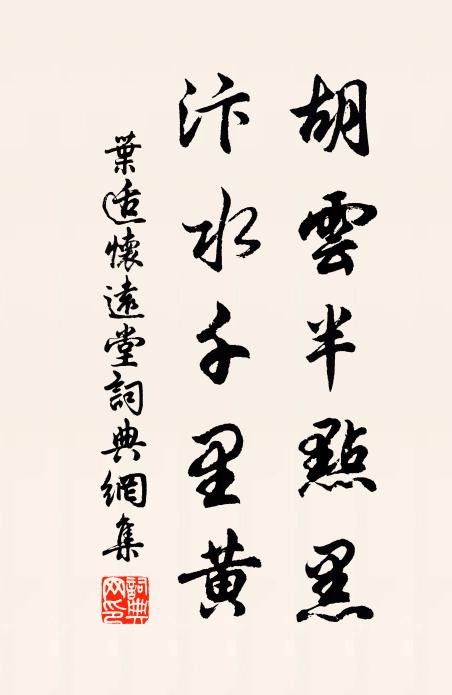 胡雲半點黑
汴水千里黃
葉适懷遠堂詞典網集
詞典网印